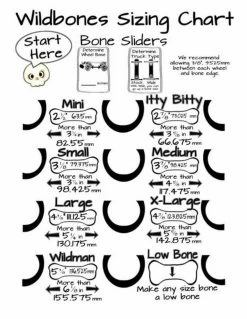 Wildbones Sizing Chart
Start Here
Bone Sliders
Determine Wheel Bone
Determine Truck Type
We recommend
allowing 3/8", 9.525mm
between each wheel
and bone edge.
Mini
2 1/2" 63.5mm
More than
3 1/4 in
82.55mm
Itty Bitty
2 7/8" 73.025 mm
More than
66.675mm
Small
3 1/8" 79.375mm
More than
3 7/8 in
98.425mm
Medium
3 7/8" 98.425 mm
More than
4 5/8 in
117.475mm
Large
4 3/8" 111.125mm
More than
5 1/8 in
130.175mm
X-Large
4 7/8" 123.825mm
More than
5 5/8 in
142.875mm
Wildman
More than
6 1/8 in
155.575mm
Low Bone
Make any size bone
a low bone